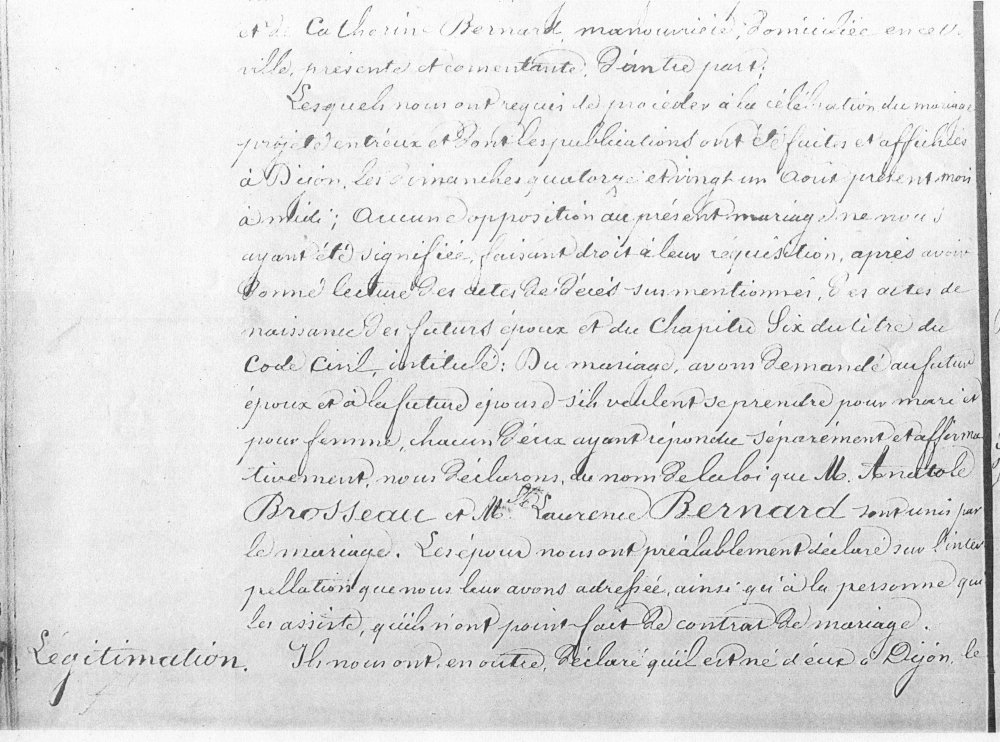 et de Catherine Bernard, manouvrière, domiciliée en cette
ville, présente et consentante, d'autre part;
Lesquels nous ont requis de procéder à la célébration du mariage
projeté entr'eux et dont les publications ont été faites et affichées
à Dijon, les dimanches quatorze et vingt un Août présent mois
à midi; Aucune opposition au présent mariage ne nous
ayant été signifiée, faisant droit à leur réquisition, après avoir
donné lecture des actes de décès susmentionnés, des actes de
naissance des futurs époux et du Chapitre Six du titre du
Code Civil, intitulé: Du mariage, avons demandé au futur
époux et à la future épouse s'ils veulent se prendre pour mari et
pour femme, chacun d'eux ayant répondu séparément et affirma
tivement, nous déclarons, au nom de la loi que M. Anatole
Brosseau et Mlle Laurence Bernard sont unis par
le mariage. Les époux nous ont préalablement déclaré sur l'inter
pellation que nous leur avons adressée, ainsi qu'à la personne qui
les assiste, qu'ils n'ont point fait de contrat de mariage.
Légitimation. Ils nous ont, en outre, déclaré qu'il est né d'eux à Dijon, le